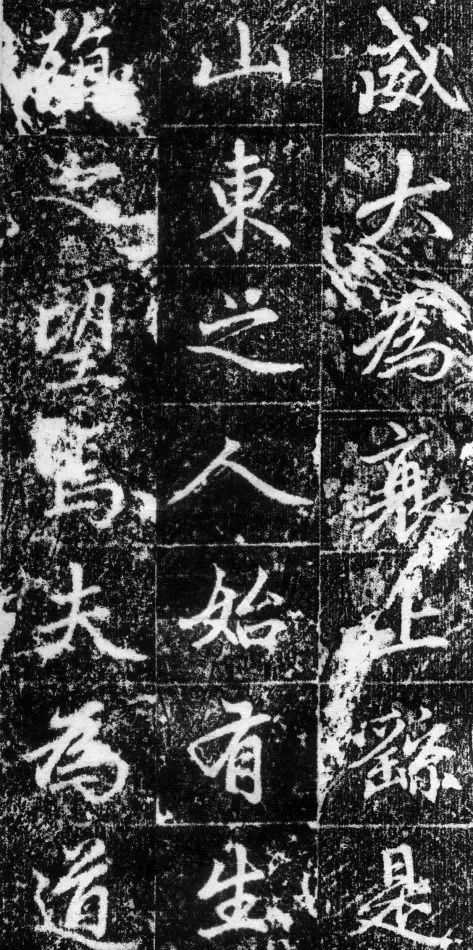 威大為衰止繇是
山東之人始有生
之望焉夫為道